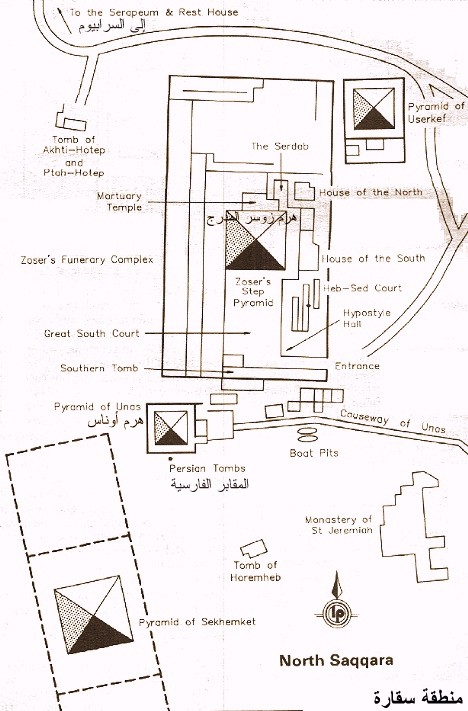 To the Serapeum & Rest House
إلى السرابيوم
Pyramid of
Userkef
Tomb of
Akhti-Hotep
and
Ptah-Hotep
The Serdab
Mortuary
Temple
House of the North
هرم زوسر المدرج
Zoser's Funerary Complex
House of the South
Zoser's
Step
Pyramid
Heb-Sed Court
Hypostyle
Hall
Great South Court
Southern Tomb
Entrance
Pyramid of Unas
هرم أوناس
Causeway of Unas
Boat Pits
Persian Tombs
المقابر الفارسية
Monastery of
St Jeremiah
Tomb of
Horemheb
Pyramid of Sekhemket
lp
North Saqqara
منطقة سقارة